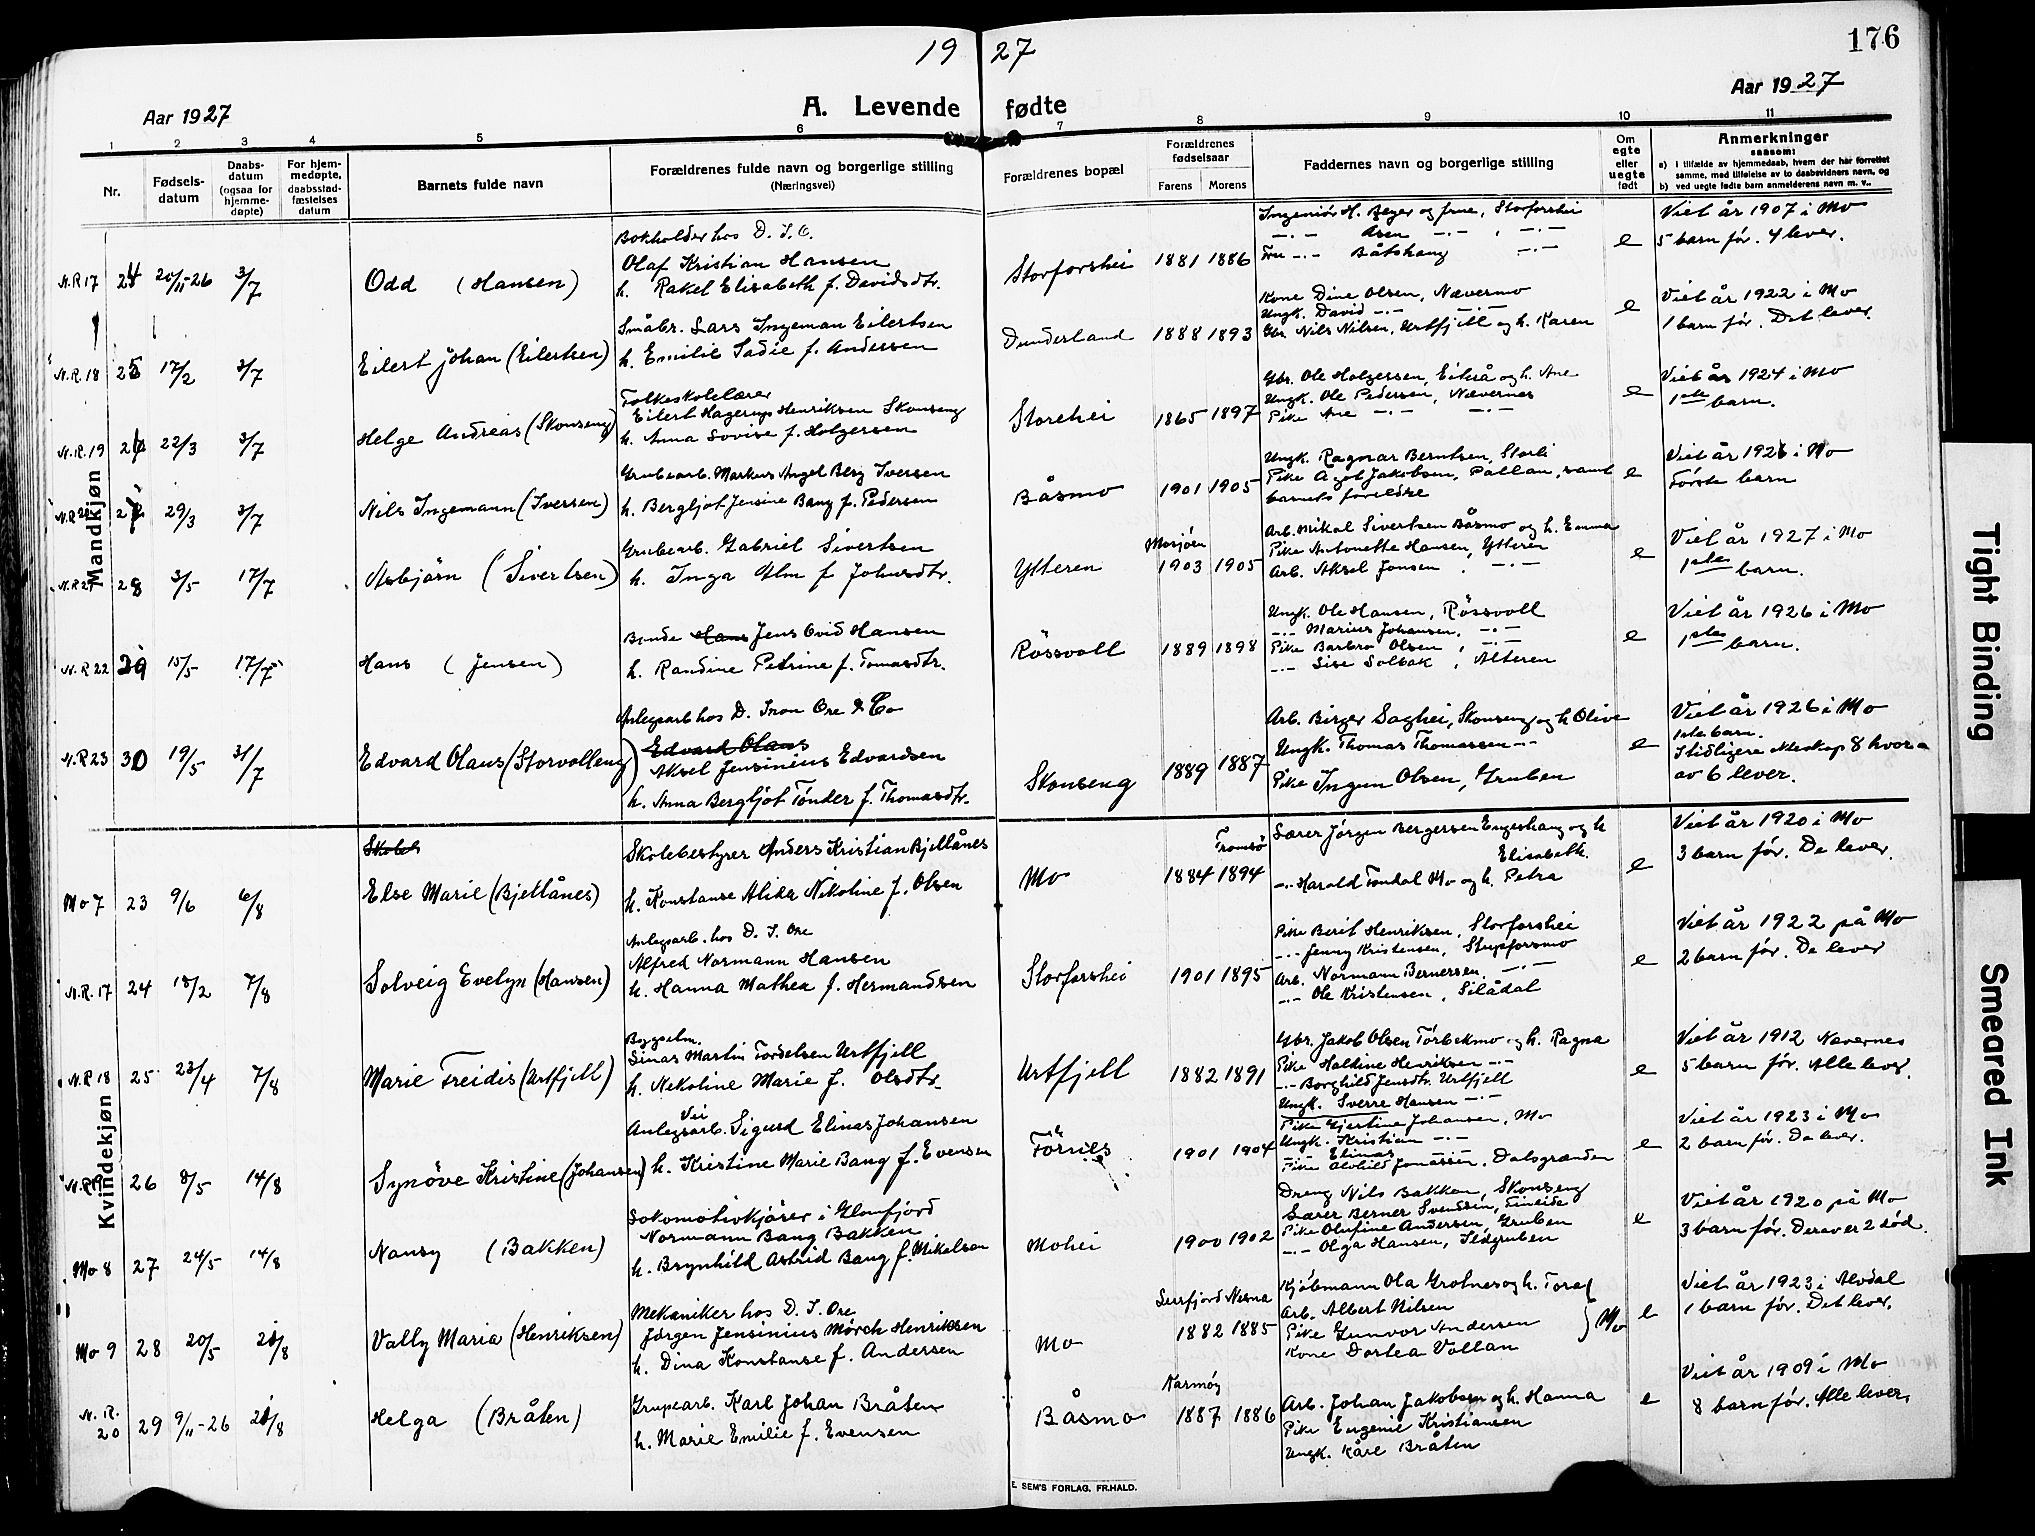 19 27
176
Aar 1927
A. Levende fødte
Aar 1927
1 2 3 4 5 6 7 8 9 10 11
Nr.
Fødsels-datum
Daabs-datum (ogsaa for hjemme-døpte)
For hjem-medøpte, daabsstad-fæstelses datum
Barnets fulde navn
Forældrenes fulde navn og borgerlige stilling
(Næringsvei)
Forældrenes bopæl
Forældrenes fødselsaar
Farens Morens
Faddernes navn og borgerlige stilling
Om egte eller uegte født
Anmerkninger
saasom:
a) I tilfælde av hjemmedaab, hvem der har forrettet samme, med tilføielse av to daabsvidners navn, og
b) ved uegte fødte barn anmelderens navn m. v..
Mandkjøn
N.R 17 24 20/11-26 3/7 Odd (Hansen)
Bokholder hos D. I. O.
Olaf Kristian Hansen
h. Rakel Elisabeth f. Davidsdtr.
Storforshei 1881 1886
Ingeniör H. Beyer og frue, Storforshei
Fru -.- Båtshaug -.-
e
Viet år 1907 i Mo
5 barn för. 4 lever.
N.R. 18 25 17/2 3/7 Eilert Johan (Eilertsen)
Småbr. Lars Ingeman Eilertsen
h. Emilie Sadie f. Andersen
Dunderland 1888 1893
Kone Dine Olsen, Nævermo
Ungk. David -.- -.-
Gbr. Nils Nilsen, Urtfjell og h. Karen
e
Viet år 1922 i Mo
1 barn för. Det lever.
N.R. 19 26 22/3 3/7 Helge Andreas (Skonseng)
Folkeskolelærer
Eilert Hagerup Henriksen Skonseng
h. Anna Lovise f. Holgersen
Storehei 1865 1897
Gbr. Ole Holgersen, Eiterå og h. Ane
Ungk. Ole Pedersen, Nævernes
Pike Ane -.- -.-
e
Viet år 1924 i Mo
1ste barn.
27 29/3 3/7 Nils Ingemann (Iversen)
Grubearb. Markus Angel Berg Iversen
h. Bergljot Jensine Bang f. Pedersen
Båsmo 1901 1905
Ungk. Ragnar Berntsen, Storli
Pike Agot Jakobsen, Pallan, samt
barnets foreldre
e
Viet år 1926 i Mo
Förste barn
N.R 21 28 3/5 17/7 Asbjörn (Sivertsen)
Grubearb. Gabriel Sivertsen
h. Inga Alm f Johnsdtr.
Ytteren Mosjöen 1903 1905
Arb. Mikal Sivertsen Båsmo og h. Emma
Pike Antonette Hansen, Ytteren
Arb. Aksel Jonsen, -.-
e
Viet år 1927 i Mo
1ste barn.
N.R 22 29 15/5 17/7 Hans (Jensen)
Bonde Hans Jens Ovid Hansen
h. Randine Petrine f. Tomasdtr.
Rössvoll 1889 1898
Ungk. Ole Hansen, Rössvoll
-.- Marius Johansen, -.-
Pike Barbro Olsen, -.-
-.- Lise Solbak, Alteren
e
Viet år 1926 i Mo
1ste barn.
N.R 23 30 19/5 31/7 Edvard Olaus (Storvolleng)
Anlegsarb hos D. Iron Ore & Co
Edvard Olaus
Aksel Jensinius Edvardsen
h. Anna Bergljot Tönder f. Thomasdtr.
Skonseng 1889 1887
Arb. Birger Saghei, Skonseng og h Olive
Ungk. Thomas Thomassen -.-
Pike Ingun Olsen, Gruben
e
Viet år 1926 i Mo
1ste barn.
I tidligere ekteskap 8 hvor-
av 6 lever.
Kvindekjøn
Mo 7 23 9/6 6/8 Else Marie (Bjellånes)
Skolebestyrer Anders Kristian Bjellånes
h. Konstanse Alida Nikoline f. Olsen
Mo Tromsö 1884 1894
Lærer Jörgen Bergersen Engeshaug og h
Elisabeth.
-.- Harald Tondal Mo og h. Petra
e
Viet år 1920 i Mo
3 barn för. De lever.
N.R. 17 24 18/2 7/8 Solveig Evelyn (Hansen)
Anlegsarb. hos D. I. Ore
Alfred Normann Hansen
h. Hanna Mathea f. Hermandsen
Storforshei 1901 1895
Pike Berit Henriksen, Storforshei
-.- Jenny Kristensen, Stupforsmo
Arb. Normann Bernersen, -.-
-.- Ole Kristensen, Silådal
e
Viet år 1922 på Mo
2 barn för. De lever
N.R 18 25 23/4 7/8 Marie Freidis (Urtfjell)
Bygselm.
Einar Martin Tordelsen Urtfjell
h. Nekoline Marie f. Olsdtr.
Urtfjell 1882 1891
Gbr. Jakob Olsen Törbekmo og h. Ragna
Pike Haldine Henriksen -.-
-.- Borghild Jensdtr. Urtfjell
Ungk. Sverre Hansen -.-
e
Viet år 1912 Nævernes
5 barn för. Alle lever.
N.R 19 26 8/5 14/8 Synöve Kristine (Johansen)
Vei
Anlegsarb. Sigurd Elinar Johansen
h. Kristine Marie Bang f. Evensen
1901 1904
Pike Gjertine Johansen, Mo
Ungk. Kristian -.-
-.- Elinas
Pike Alvhild Jonassen. Dalsgrænden
e
Viet år 1923 i Mo
2 barn för. De lever.
Mo 8 27 24/5 14/8 Nansy (Bakken)
Lokomotivkjörer i Glomfjord
Normann Bang Bakken
h. Brynhild Astrid Bang f. Mikelsen
Mohei 1900 1902
Dreng Nils Bakken, Skonseng
Lærer Berner Svendsen, Fineide
Pike Olufine Andersen, Gruben
-.- Olga Hansen, Ildgruben
e
Viet år 1920 på Mo
3 barn för. Derav er 2 död.
Mo 9 28 20/5 21/8 Vally Maria (Henriksen)
Mekaniker hos D. I. Ore
Jörgen Jensinius Mörch Henriksen
h. Dina Konstanse f. Andersen
Mo Leirfjord Nesna 1882 1885
Kjöbmann Ola Grotnes og h. Tora
Arb. Albert Nilsen
Pike Gunvor Andersen } Mo
Kone Dortea Vollan
e
Viet år 1923 i Alvdal
1 barn för. Det lever.
N.R. 20 29 9/11-26 21/8 Helga (Bråten)
Grupearb. Karl Johan Bråten
h. Marie Emilie f. Evensen
Båsmo Karmöy 1887 1886
Arb. Johan Jakobsen og h. Hanna
Pike Eugenie Kristiansen
Ungk. Kåre Bråten
e
Viet år 1909 i Mo
8 barn för. Alle lever.
E. SEM'S FORLAG, FR.HALD.
Tight Binding
Smeared Ink